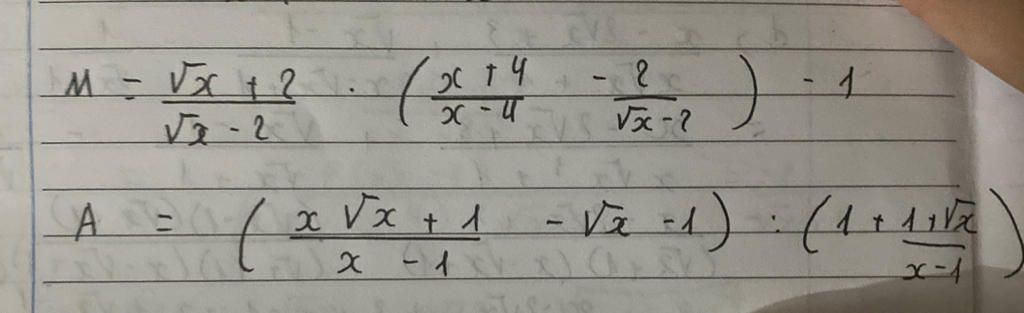 M = \frac{\sqrt{x} + 2}{\sqrt{x} - 2} \cdot \left( \frac{x + 4}{x - 4} - \frac{2}{\sqrt{x} - 2} \right) - 1
A = \left( \frac{x \sqrt{x} + 1}{x - 1} - \sqrt{x} - 1 \right) : \left( 1 + \frac{1 + \sqrt{x}}{x - 1} \right)